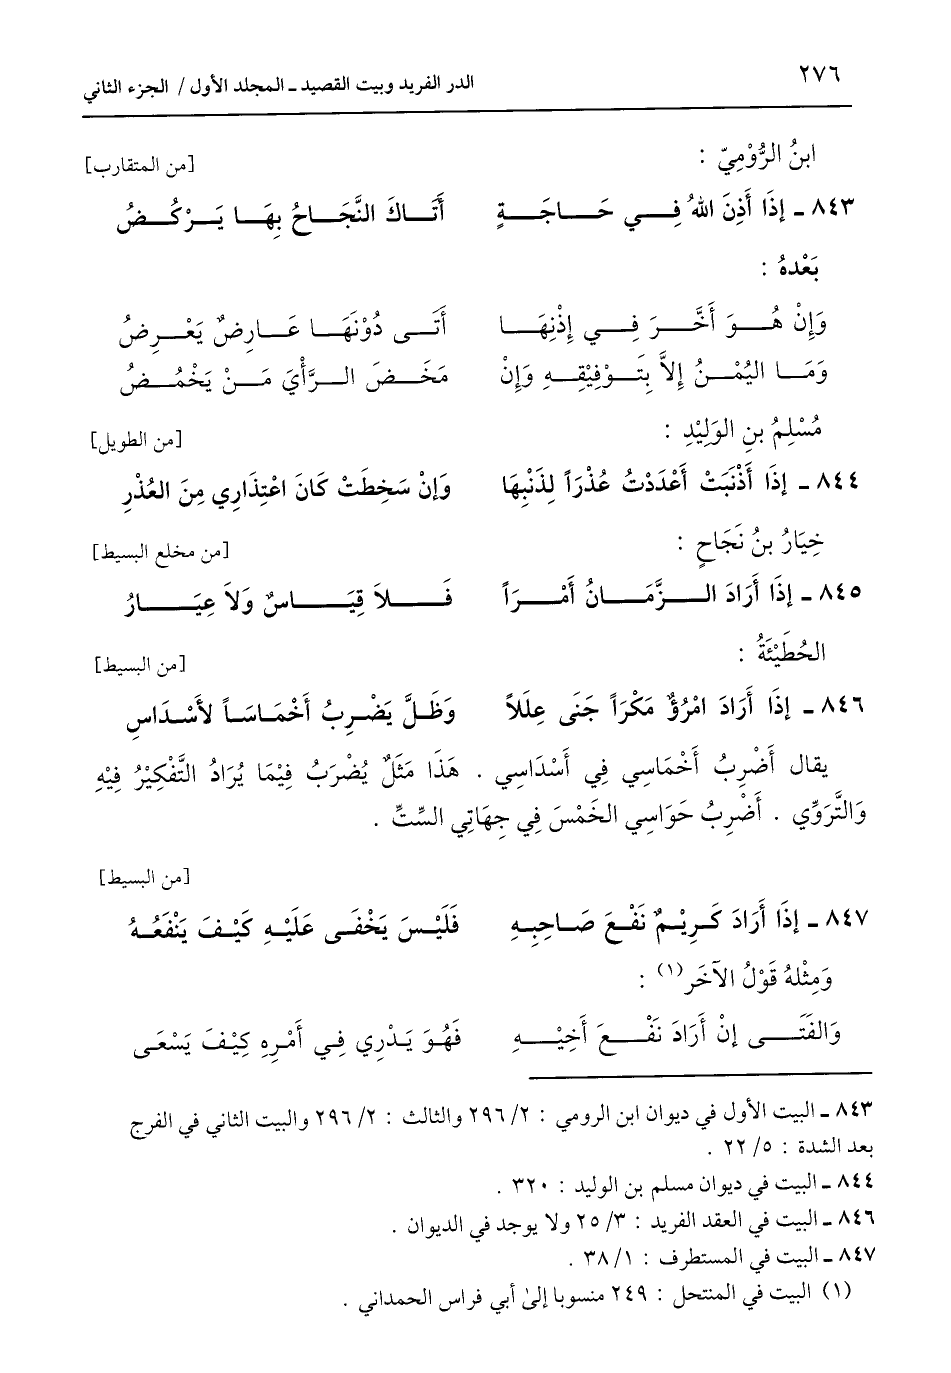 ٢٧٦
الدر الفريد وبيت القصيد ـ المجلد الأول / الجزء الثاني
ابنُ الرُّوْمِيّ : [من المتقارب]
٨٤٣ ـ إِذَا أَذِنَ اللهُ فِـي حَـاجَـةٍ أَتَـاكَ النَّجَـاحُ بِهَـا يَـرْكُـضُ
بَعْدهُ :
وَإِنْ هُـوَ أَخَّـرَ فِـي إِذْنِهَـا أَتَـى دُوْنَهَـا عَـارِضٌ يَعْـرِضُ
وَمَـا اليُمْـنُ إِلاَّ بِتَـوْفِيْقِـهِ وَإِنْ مَخَـضَ الـرَّأْيَ مَـنْ يَخْمُـضُ
مُسْلِمُ بنِ الوَلِيْدِ : [من الطويل]
٨٤٤ ـ إِذَا أَذْنَبَتْ أَعْدَدْتُ عُذْرَاً لِذَنْبِهَا وَإِنْ سَخِطَتْ كَانَ اعْتِذَارِي مِنَ العُذْرِ
خِيَارُ بنُ نَجَاحٍ : [من مخلع البسيط]
٨٤٥ ـ إِذَا أَرَادَ الـزَّمَـانُ أَمْـرَاً فَـلاَ قِيَـاسٌ وَلاَ عِيَـارُ
الحُطَيْئَةُ : [من البسيط]
٨٤٦ ـ إِذَا أَرَادَ امْرُؤٌ مَكْرَاً جَنَى عِلَلاً وَظَلَّ يَضْرِبُ أَخْمَاسَاً لأَسْدَاسِ
يقال أَضْرِبُ أَخْمَاسِي فِي أَسْدَاسِي . هَذَا مَثَلٌ يُضْرَبُ فِيْمَا يُرَادُ التَّفْكِيْرُ فِيْهِ
وَالتَّرَوِّي . أَضْرِبُ حَوَاسِي الخَمْسَ فِي جِهَاتِي السِّتِّ .
[من البسيط]
٨٤٧ ـ إِذَا أَرَادَ كَـرِيْـمٌ نَفْـعَ صَـاحِبِـهِ فَلَيْـسَ يَخْفَـى عَلَيْـهِ كَيْـفَ يَنْفَعُـهُ
وَمِثْلهُ قَوْلُ الآخَر(١) :
وَالفَتَـى إِنْ أَرَادَ نَفْـعَ أَخِيْـهِ فَهُـوَ يَـدْرِي فِـي أَمْـرِهِ كَيْـفَ يَسْعَى
٨٤٣ ـ البيت الأول في ديوان ابن الرومي : ٢/ ٢٩٦ والثالث : ٢/ ٢٩٦ والبيت الثاني في الفرج
بعد الشدة : ٥/ ٢٢ .
٨٤٤ ـ البيت في ديوان مسلم بن الوليد : ٣٢٠ .
٨٤٦ ـ البيت في العقد الفريد : ٣/ ٢٥ ولا يوجد في الديوان .
٨٤٧ ـ البيت في المستطرف : ١/ ٣٨ .
(١) البيت في المنتحل : ٢٤٩ منسوبا إلىٰ أبي فراس الحمداني .